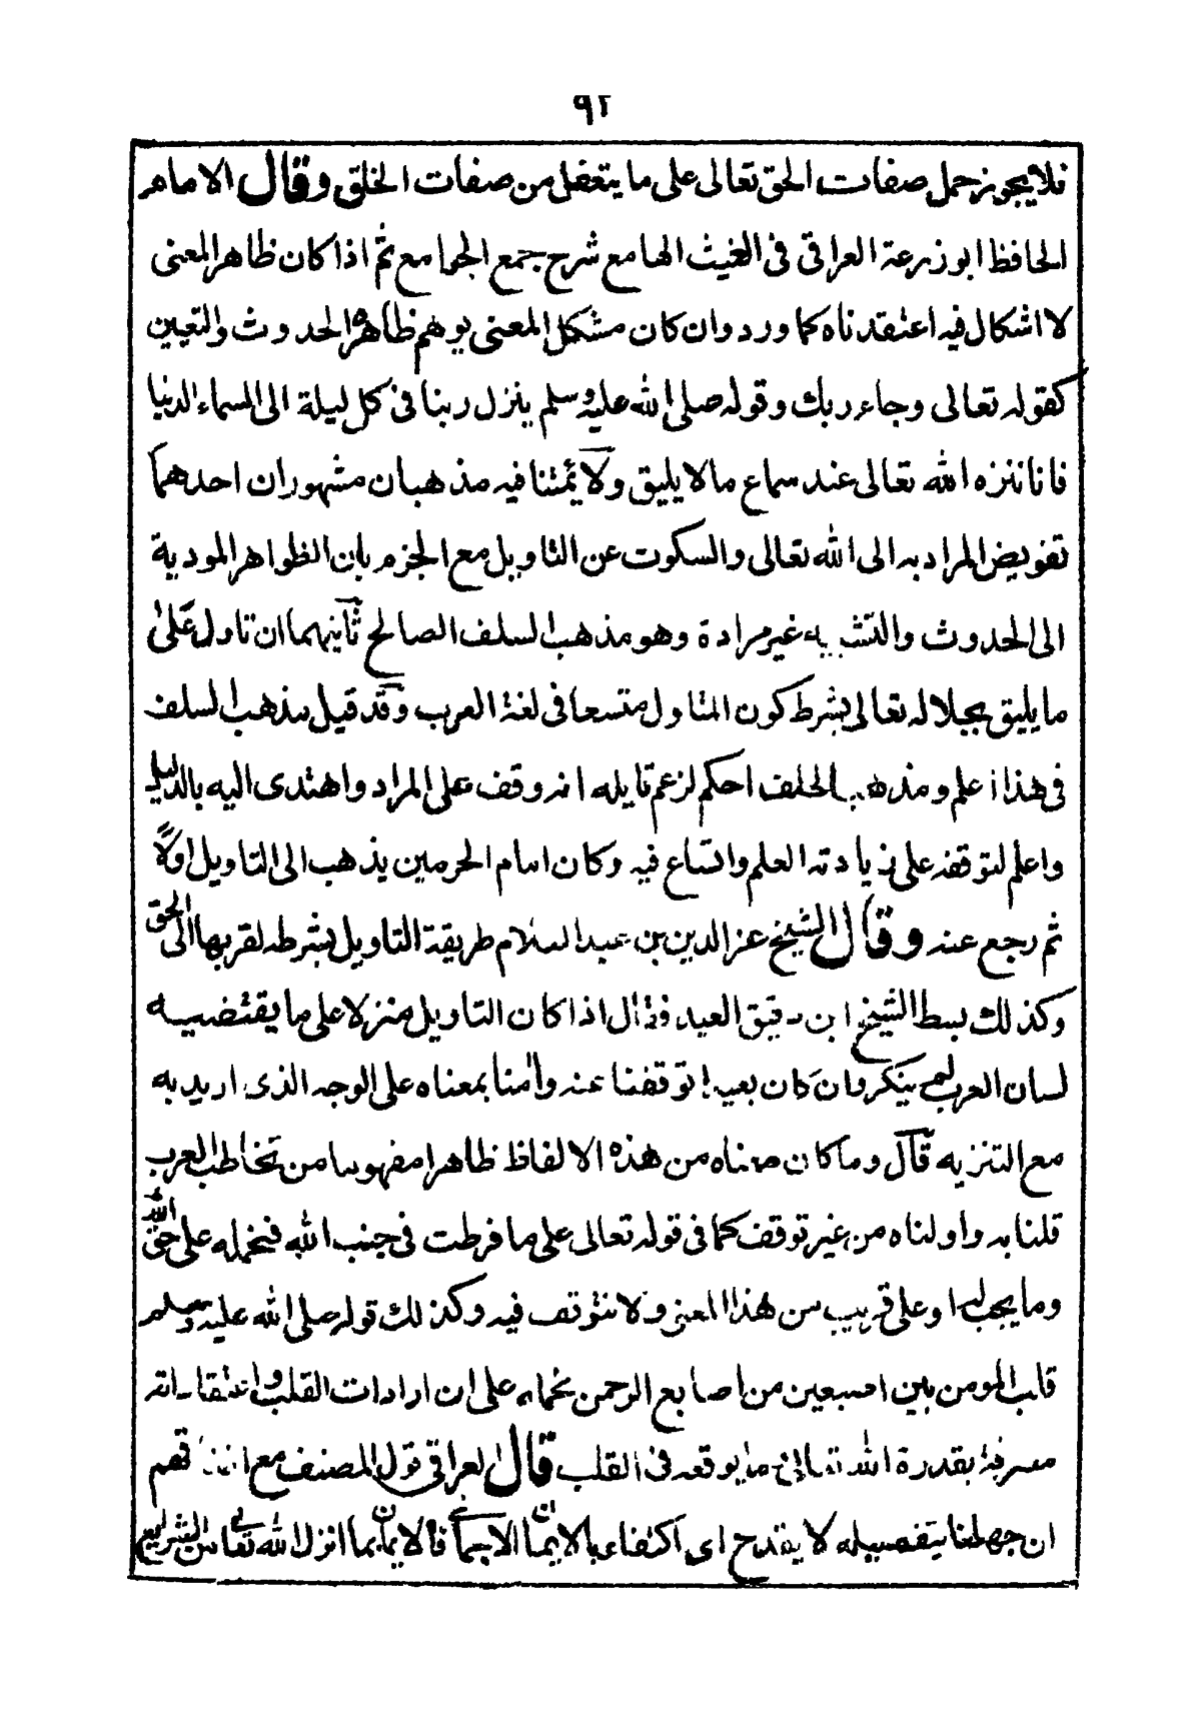 ٩٢
فلا يجوز حمل صفات الحق تعالى على ما يتعقل من صفات الخلق وقال الامام
الحافظ ابو زرعة العراقى فى الغيث الهامع شرح جمع الجوامع ثم اذا كان ظاهر المعنى
لا اشكال فيه اعتقدناه كما ورد وان كان مشكل المعنى يوهم ظاهره الحدوث والتعيين
كقوله تعالى وجاء ربك وقوله صلى الله عليه وسلم ينزل ربنا فى كل ليلة الى السماء الدنيا
فاناننزه الله تعالى عند سماع ما لا يليق ولأئمتنا فيه مذهبان مشهوران احدهما
تفويض المراد به الى الله تعالى والسكوت عن التاويل مع الجزم بان الظواهر المودية
الى الحدوث والتشبيه غير مرادة وهو مذهب السلف الصالح ثانيهما ان تاول على
ما يليق بجلاله تعالى بشرط كون المتاول متسعا فى لغة العرب وقد قيل مذهب السلف
فى هذا اعلم ومذهب الخلف احكم لزعم قايله انه وقف على المراد واهتدى اليه بالدليل
واعلم لتوقفه على زيادته العلم واتساع فيه وكان امام الحرمين يذهب الى التاويل اولاً
ثم رجع عنه وقال الشيخ عز الدين بن عبد السلام طريقة التاويل بشرطه لقربها الى الحق
وكذلك بسط الشيخ ابن دقيق العيد فقال اذا كان التاويل منزلا على ما يقتضيه
لسان العرب لم ينكر وان كان بعيدا توقفنا عنه وامنا بمعناه على الوجه الذى اريد به
مع التنزيه قال وما كان معناه من هذه الالفاظ ظاهرا مفهوما من تخاطب العرب
قلنا به واولناه من غير توقف كما فى قوله تعالى على ما فرطت فى جنب الله فنحمله على حق الله
وما يجب له او على قريب من هذا المعنى ولا نتوقف فيه وكذلك قوله صلى الله عليه وسلم
قلب المومن بين اصبعين من اصابع الرحمن نحمله على ان ارادات القلب واعتقاداته
مصرفة بقدرة الله تعالى وما يوقعه فى القلب قال العراقى قول المصنف مع
ان جهلنا بتفصيله لا يقدح اى اكتفاء بالايمان الاجمالى فالايمان بما انزل الله تعالى